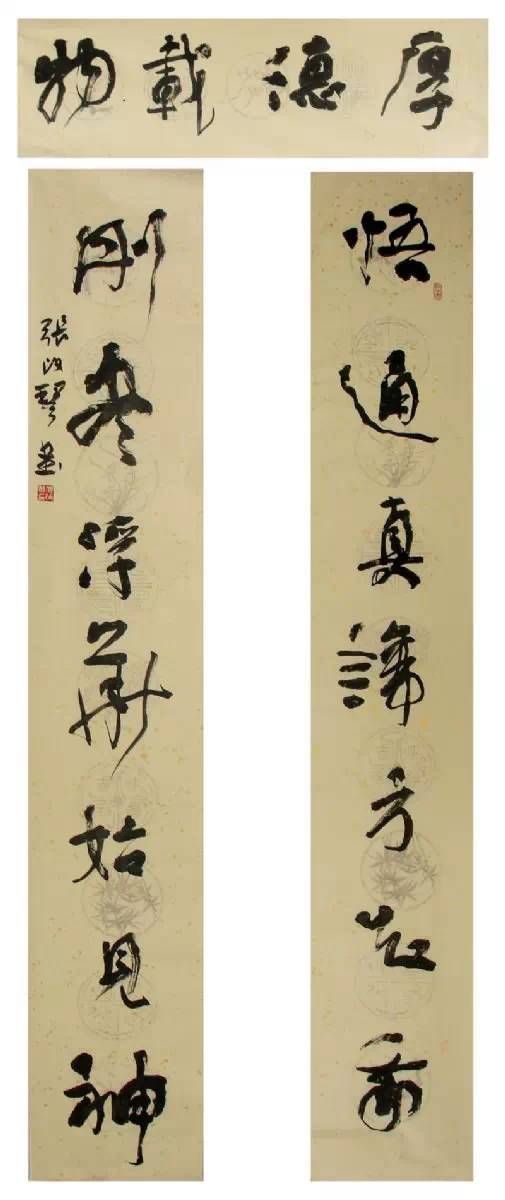 厚德載物
悟通真諦方
刪盡浮華始見神
張改琴書